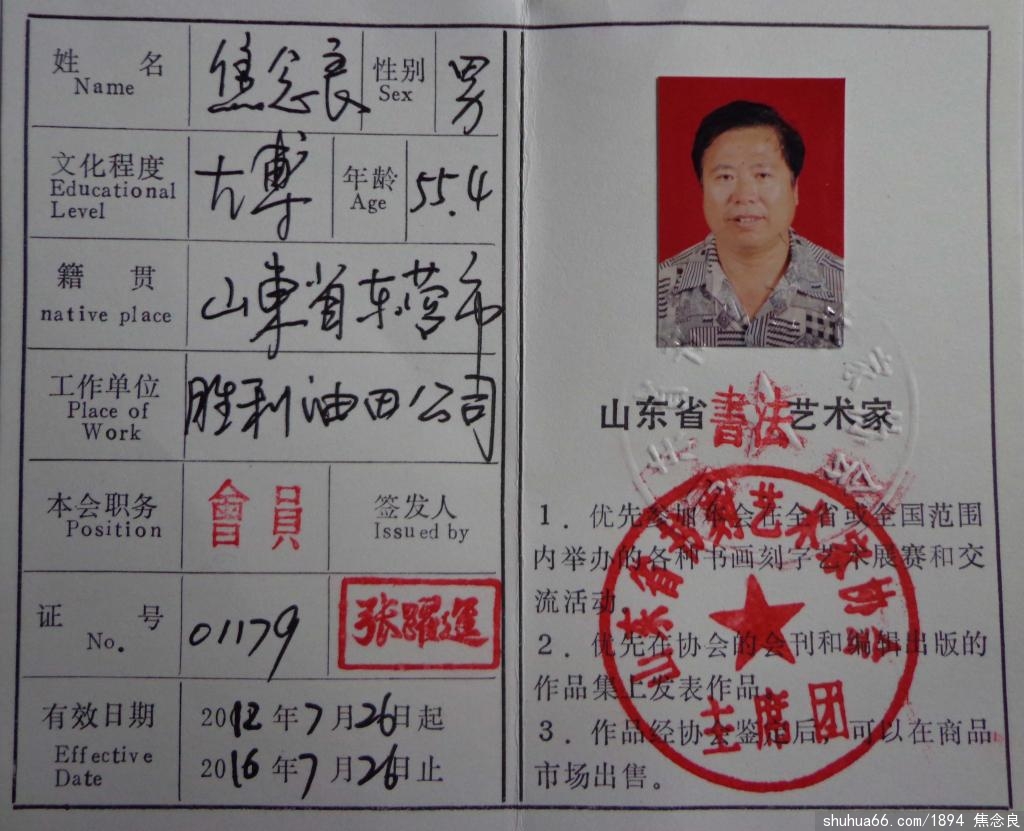 姓 名 焦念良 性别 男
Name Sex
文化程度 大專 年龄 55.4
Educational Age
Level
籍 贯 山東省东营市
native place
工作单位 胜利油田公司
Place of
Work
本会职务 會員 签发人
Position Issued by
证 号 01179 张躍進
No.
有效日期 2012年7月26日起
Effective
Date 2016年7月26日止
山东省書法艺术家
1．优先参加本会在全省或全国范围
内举办的各种书画刻字艺术展赛和交
流活动。
2．优先在协会的会刊和编辑出版的
作品集上发表作品。
3．作品经协会鉴定后，可以在商品
市场出售。
主席团
shuhua66.com/1894 焦念良